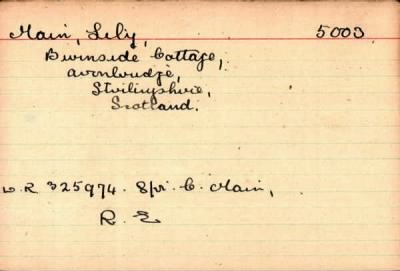 Main, Lily, 5003
Burnside Cottage,
Avonbridge,
Stirlingshire,
Scotland.
W.R 325974. Spr. C. Main,
R. E